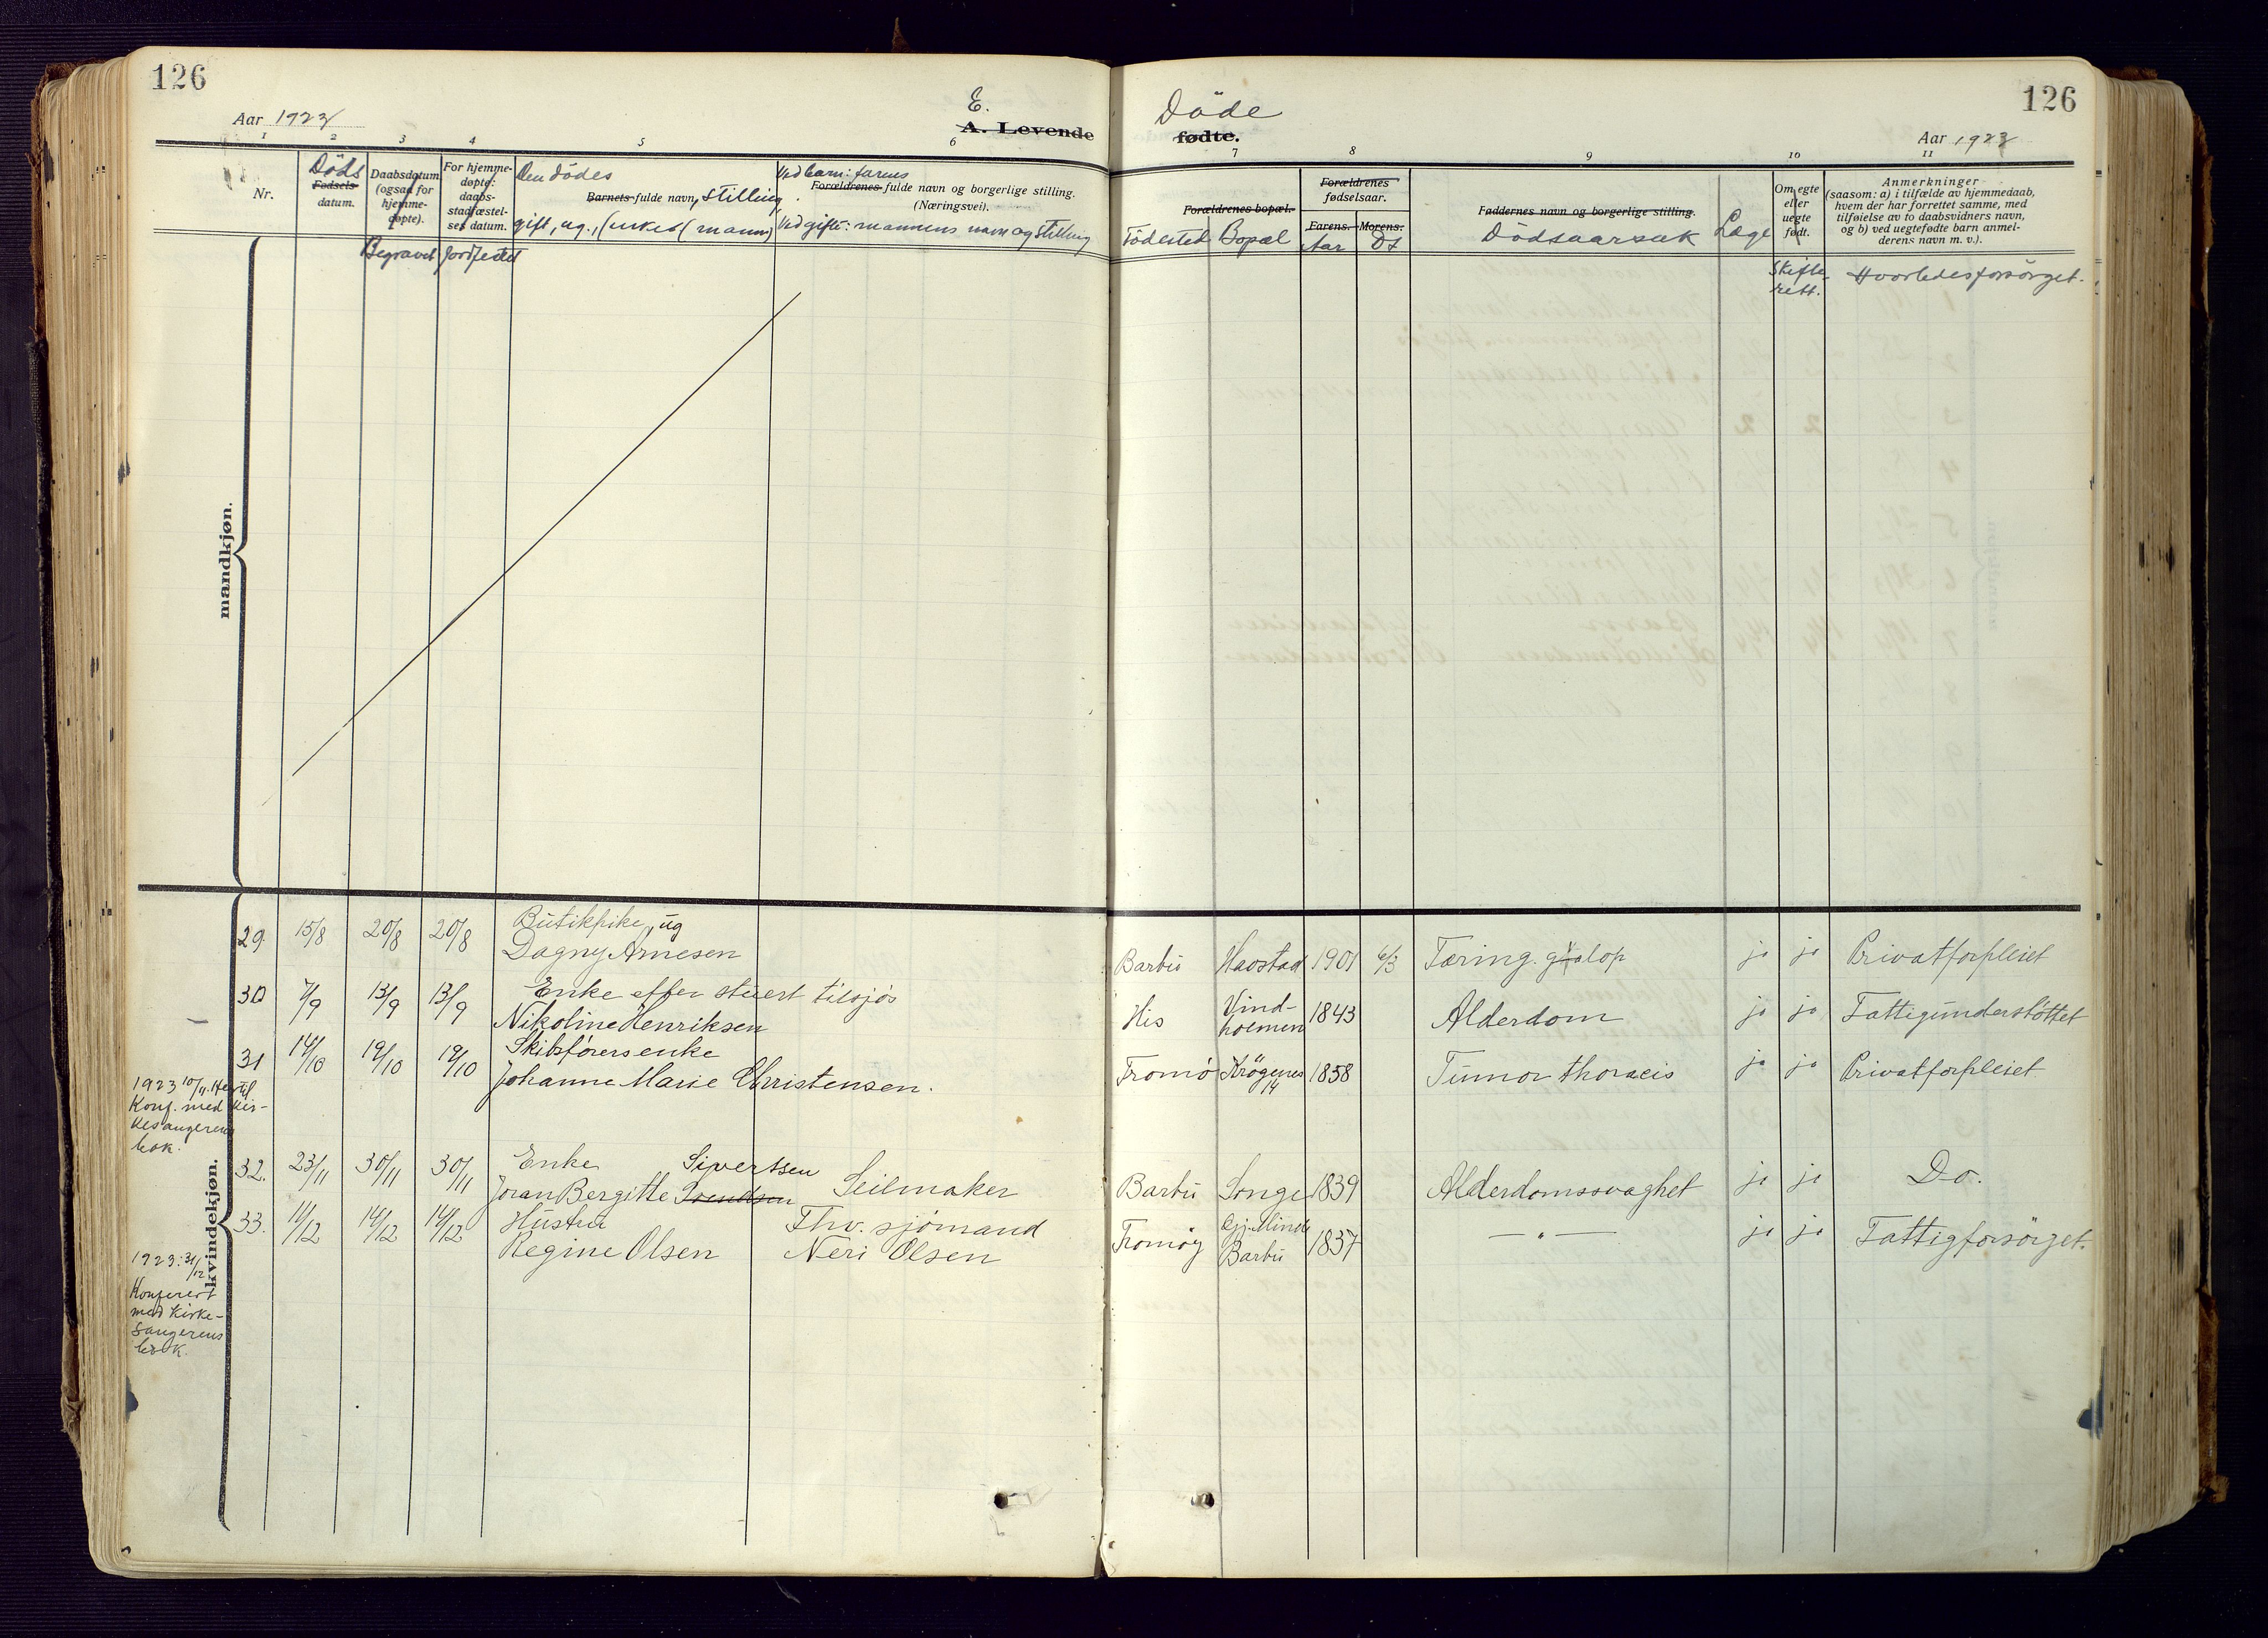 126
126
Aar 1923
E.
A. Levende
Døde
fødte.
Aar 1923
1 2 3 4 5 6 7 8 9 10 11
Nr.
Døds
Fødsels-
datum.
Daabsdatum
(ogsaa for
hjemme-
døpte).
Begravet
For hjemme-
døpte:
daabs-
stadfæstel-
ses datum.
Jordfestet
Den dödes
Barnets fulde navn, stilling,
gift, ug., (enke)(mann)
Ved barn: farens
Forældrenes fulde navn og borgerlige stilling.
(Næringsvei).
Ved gifte: mannens navn og stilling
Forældrenes bopæl.
Födested Bopæl
Forældrenes
fødselsaar.
Farens. Morens.
Aar
Faddernes navn og borgerlige stilling.
Dödsaarsak
Læge
Om egte
eller
uegte
født.
Skifte-
rett.
Anmerkninger
(saasom: a) i tilfælde av hjemmedaab,
hvem der har forrettet samme, med
tilføielse av to daabsvidners navn,
og b) ved uegtefødte barn anmel-
derens navn m. v.).
Hvorledes forsörget.
mandkjøn.
kvindekjøn.
29. 15/8 20/8 20/8 Butikpike, ug
Dagny Arnesen Barbu Havstad 1901 6/3 Tæring. galop ja ja Privatforpleiet
30 7/9 13/9 13/9 Enke efter stuert tilsjøs
Nikoline Henriksen His Vind-
holmen 1843 Alderdom ja ja Fattigunderstöttet
31 14/10 19/10 19/10 Skibsførersenke
Johanne Marie Christensen. Tromø Krögenes
14 1858 Tumor thoracis ja ja Privatforpleiet
1923 10/11. Hertil
Konf. med kir-
kesangerens
bok.
32. 23/11 30/11 30/11 Enke Sivertsen
Joran Bergitte Svendsen Seilmaker Barbu Songe 1839 Alderdomssvaghet ja ja Do.
33. 11/12 14/12 14/12 Hustru Thv. sjömand
Regine Olsen Neri Olsen Tromøy Gj.Minde
Barbu 1837 — " — ja ja Fattigforsörget.
1923: 31/12
Konferert
med Kirke-
sangerens
bok.